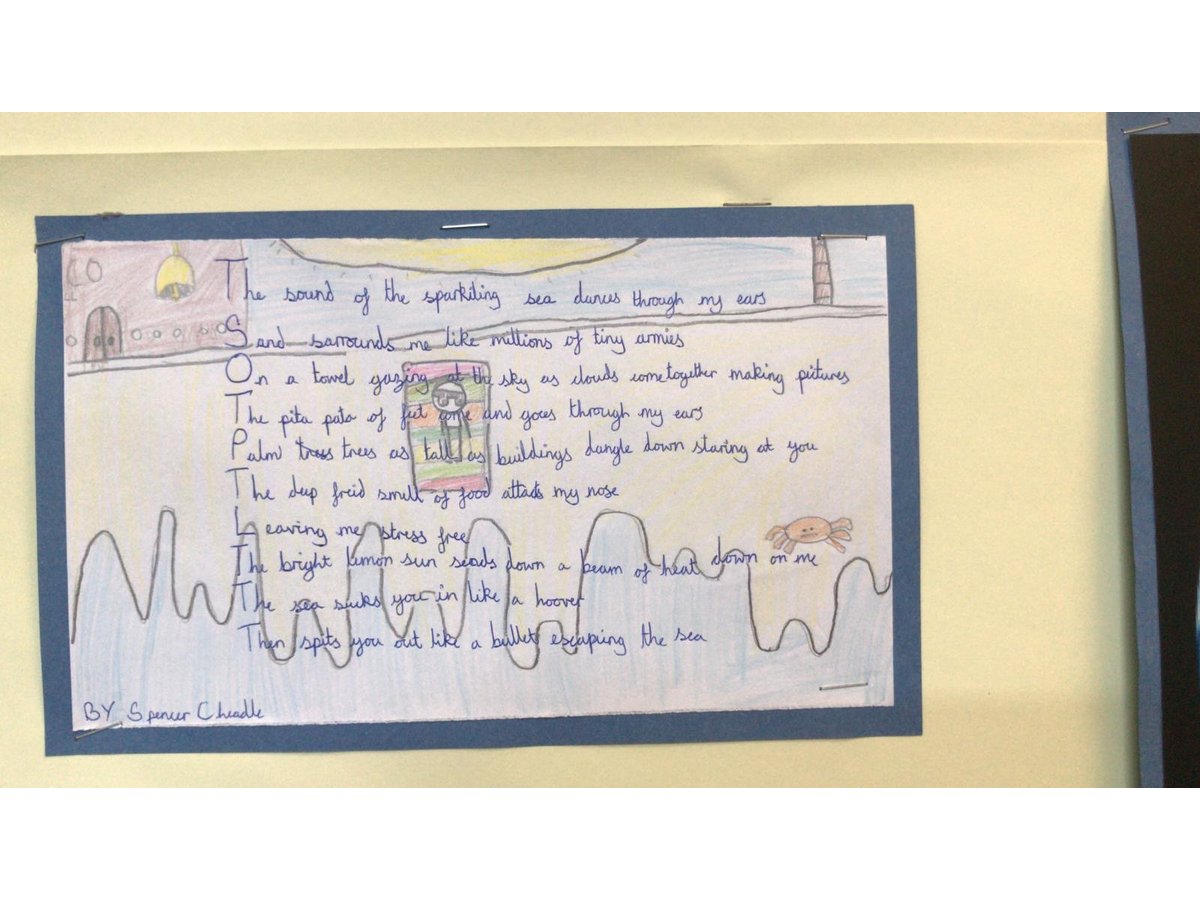 The sound of the sparkiling sea dances through my ears
Sand sarrounds me like millions of tiny armies
On a towel gazing at the sky as clouds come together making pictures
The pita pata of feet come and goes through my ears
Palm trees as tall as buildings dangle down staring at you
The deep freid smell of food attacks my nose
Leaving me stress free
The bright lemon sun sends down a beam of heat down on me
The sea sucks you in like a hoover
Then spits you out like a bullet escaping the sea
BY Spencer Cheadle